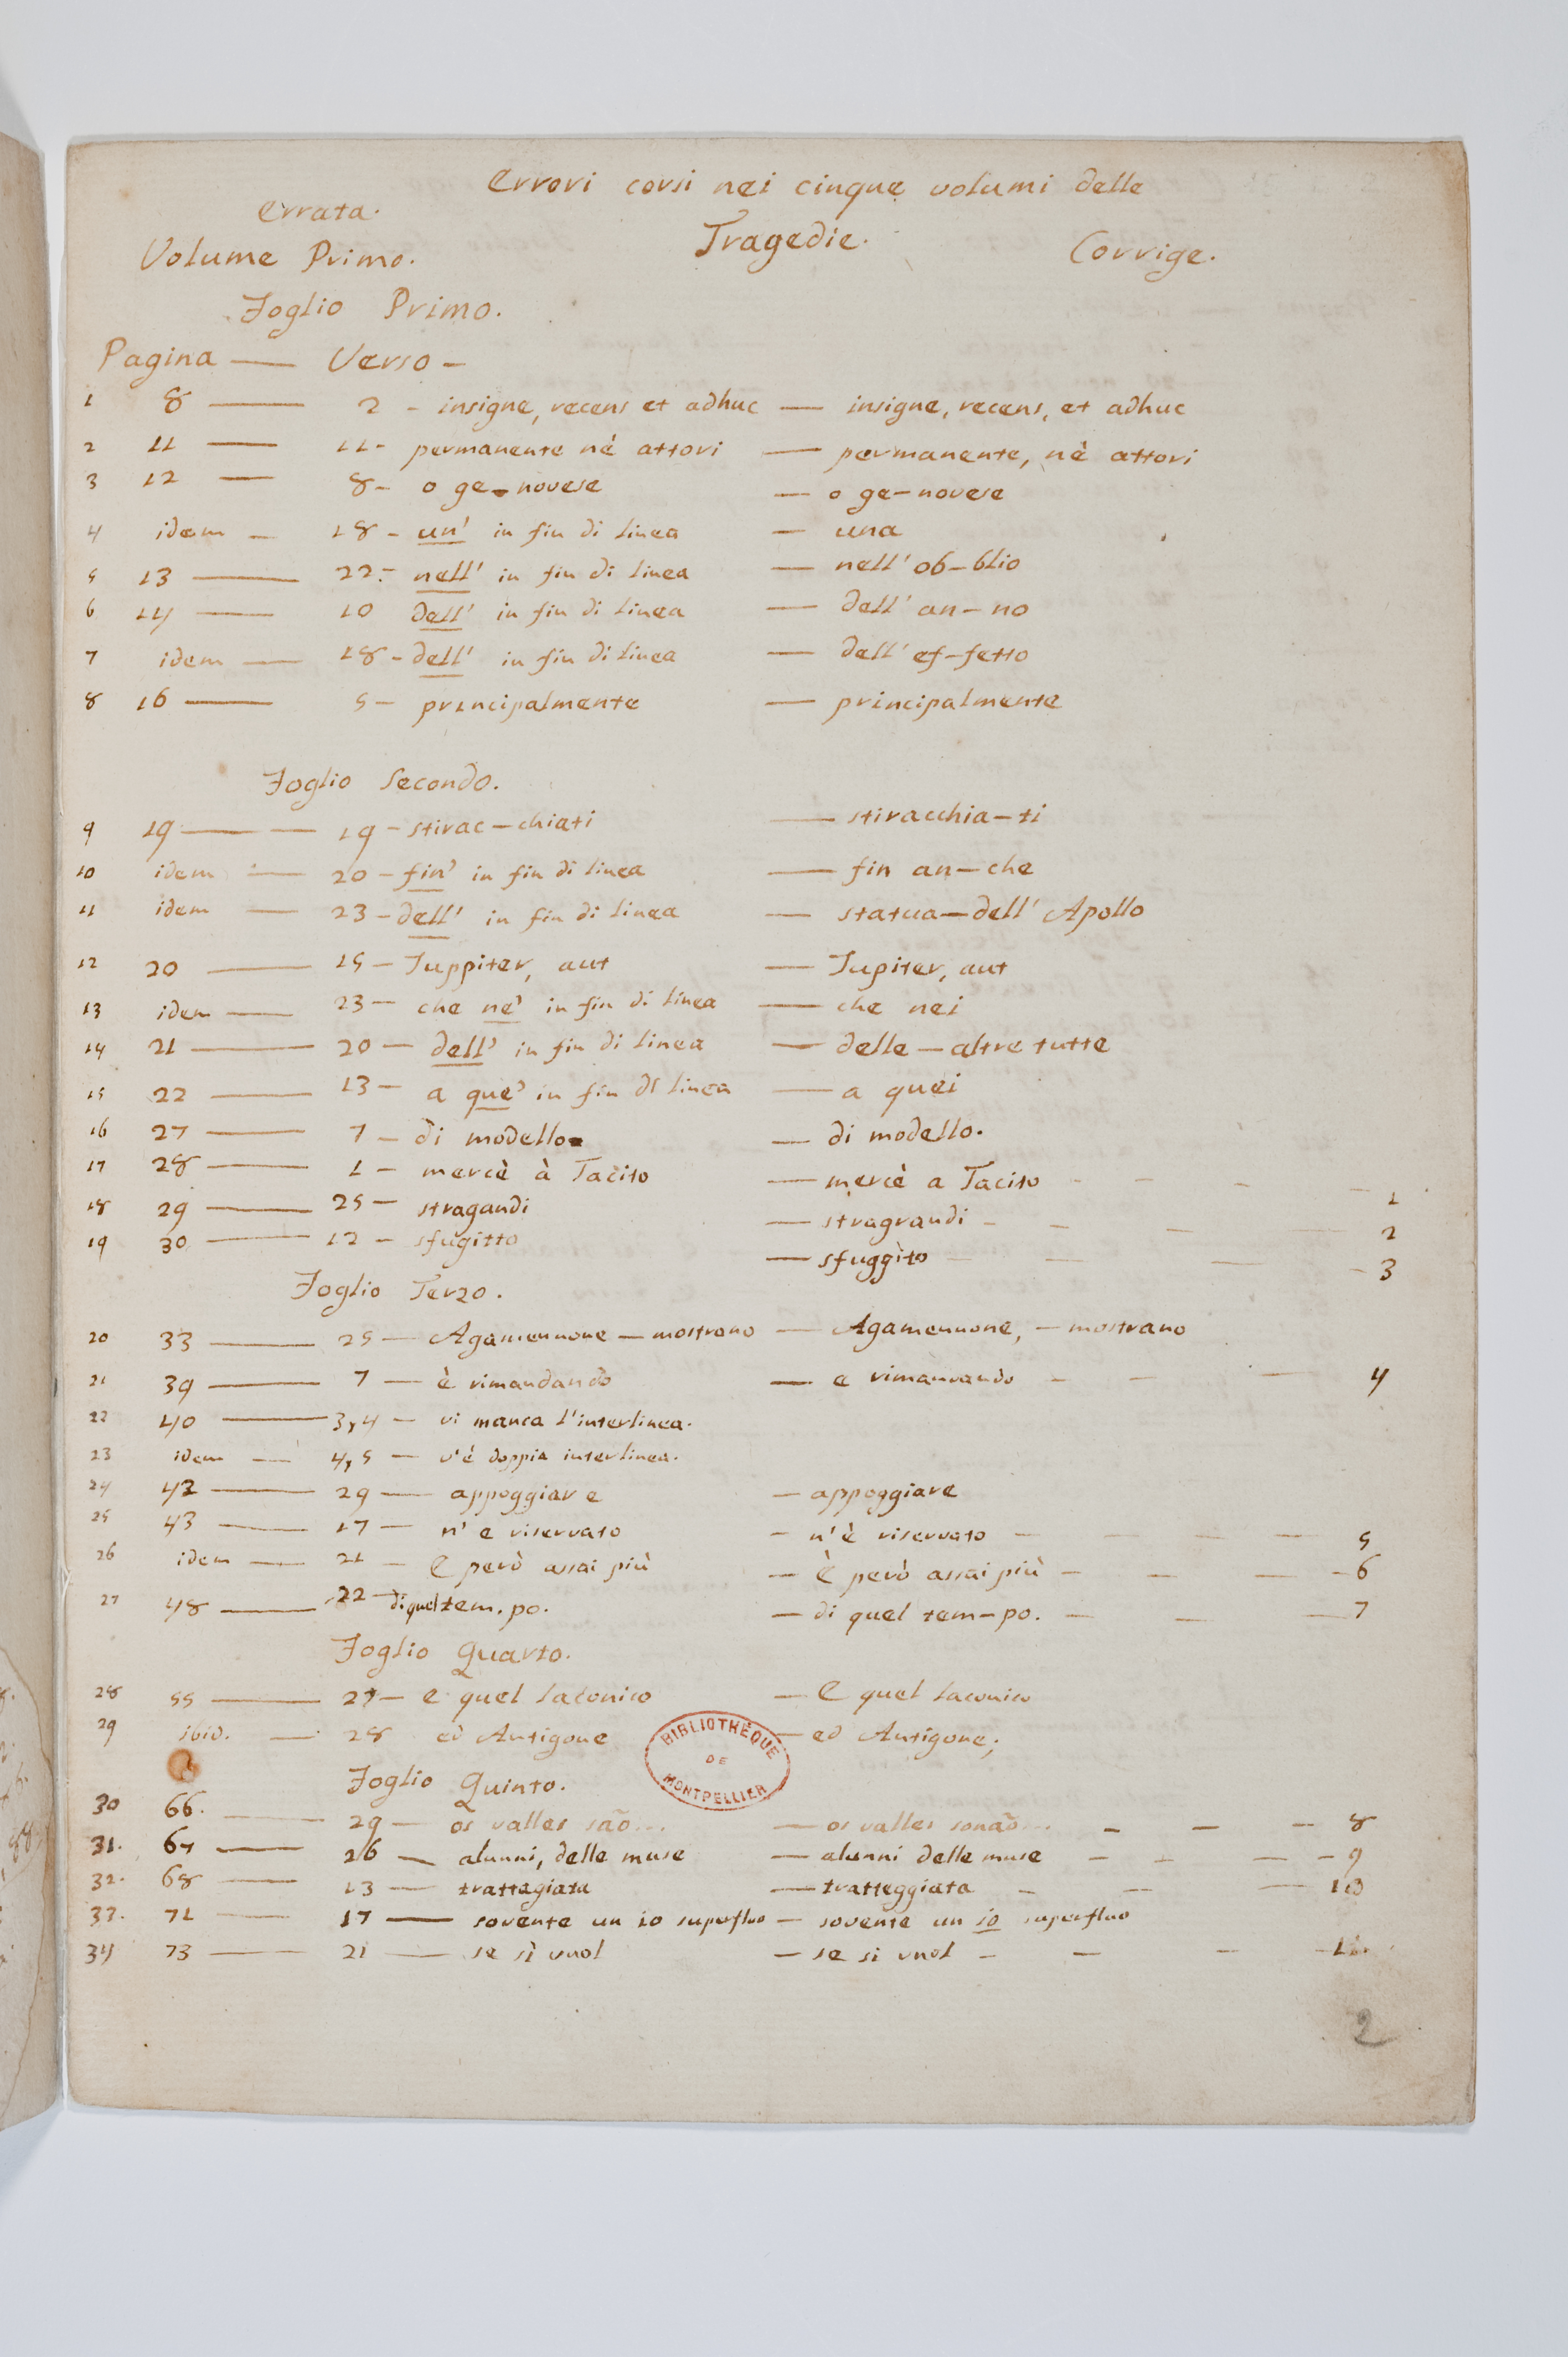 Errori corsi nei cinque volumi delle
Errata.
Tragedie.
Volume Primo.
Corrige.
Foglio Primo.
Pagina — Verso —
1 8 — 2 - insigne, recens et adhuc — insigne, recens, et adhuc
2 11 — 11 - permanente nè attori — permanente, nè attori
3 12 — 8 - o ge-novese — o ge-novese
4 idem — 18 - un' in fin di linea — una
5 13 — 22 - nell' in fin di linea — nell' ob-blio
6 14 — 10 dell' in fin di linea — dell' an-no
7 idem — 18 - dell' in fin di linea — dell' ef-fetto
8 16 — 5 - principalmente — principalmente
Foglio Secondo.
9 19 — 19 - stirac-chiati — stiracchia-ti
10 idem — 20 - fin' in fin di linea — fin an-che
11 idem — 23 - dell' in fin di linea — statua-dell' Apollo
12 20 — 15 - Juppiter, aut — Jupiter, aut
13 idem — 23 - che ne' in fin di linea — che nei
14 21 — 20 - dell' in fin di linea — delle-altre tutte
15 22 — 13 - a que' in fin di linea — a quei
16 27 — 7 - di modello — di modello.
17 28 — 1 - mercè à Tacito — mercè a Tacito - - - - 1
18 29 — 25 - stragandi — stragrandi - - - - 2
19 30 — 12 - sfugitto — sfuggito - - - - 3
Foglio Terzo.
20 33 — 25 - Agamennone — mostrano — Agamennone, — mostrano
21 39 — 7 - è rimandando — e rimandando - - - 4
22 40 — 3, 4 - vi manca l'interlinea.
23 idem — 4, 5 - v'è doppia interlinea.
24 42 — 29 - appoggiar e — appoggiare
25 43 — 17 - n' e riservato — n' è riservato - - - - 5
26 idem — 21 - E però assai più — È però assai più - - - - 6
27 48 — 22 - di quel tem. po. — di quel tem-po. - - - 7
Foglio Quarto.
28 55 — 27 - e quel laconico — E quel laconico
29 ibid. — 28 ed Antigone — ed Antigone;
BIBLIOTHÈQUE DE MONTPELLIER
Foglio Quinto.
30 66. — 29 - os valles são... — os valles sonão... - - - 8
31. 67 — 26 - alunni, delle muse — alunni delle muse - - - - 9
32. 68 — 13 - trattagiata — tratteggiata - - - 10
33. 71 — 17 - sovente un io superfluo — sovente un io superfluo
34 73 — 21 - se sì vuol — se si vuol - - - - 11.
2